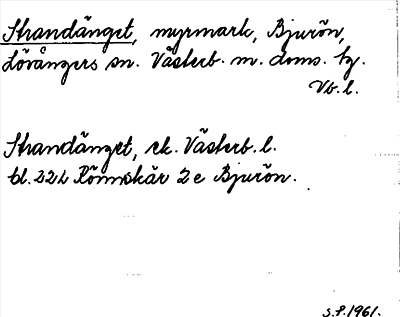 Strandänget, myrmark, Bjurön,
Lövångers sn. Västerb. m. doms. tg.
Vb. l.
Strandänget, ek. Västerb. l.
bl. 22L Rönnskär 2e Bjurön.
S.P. 1961.